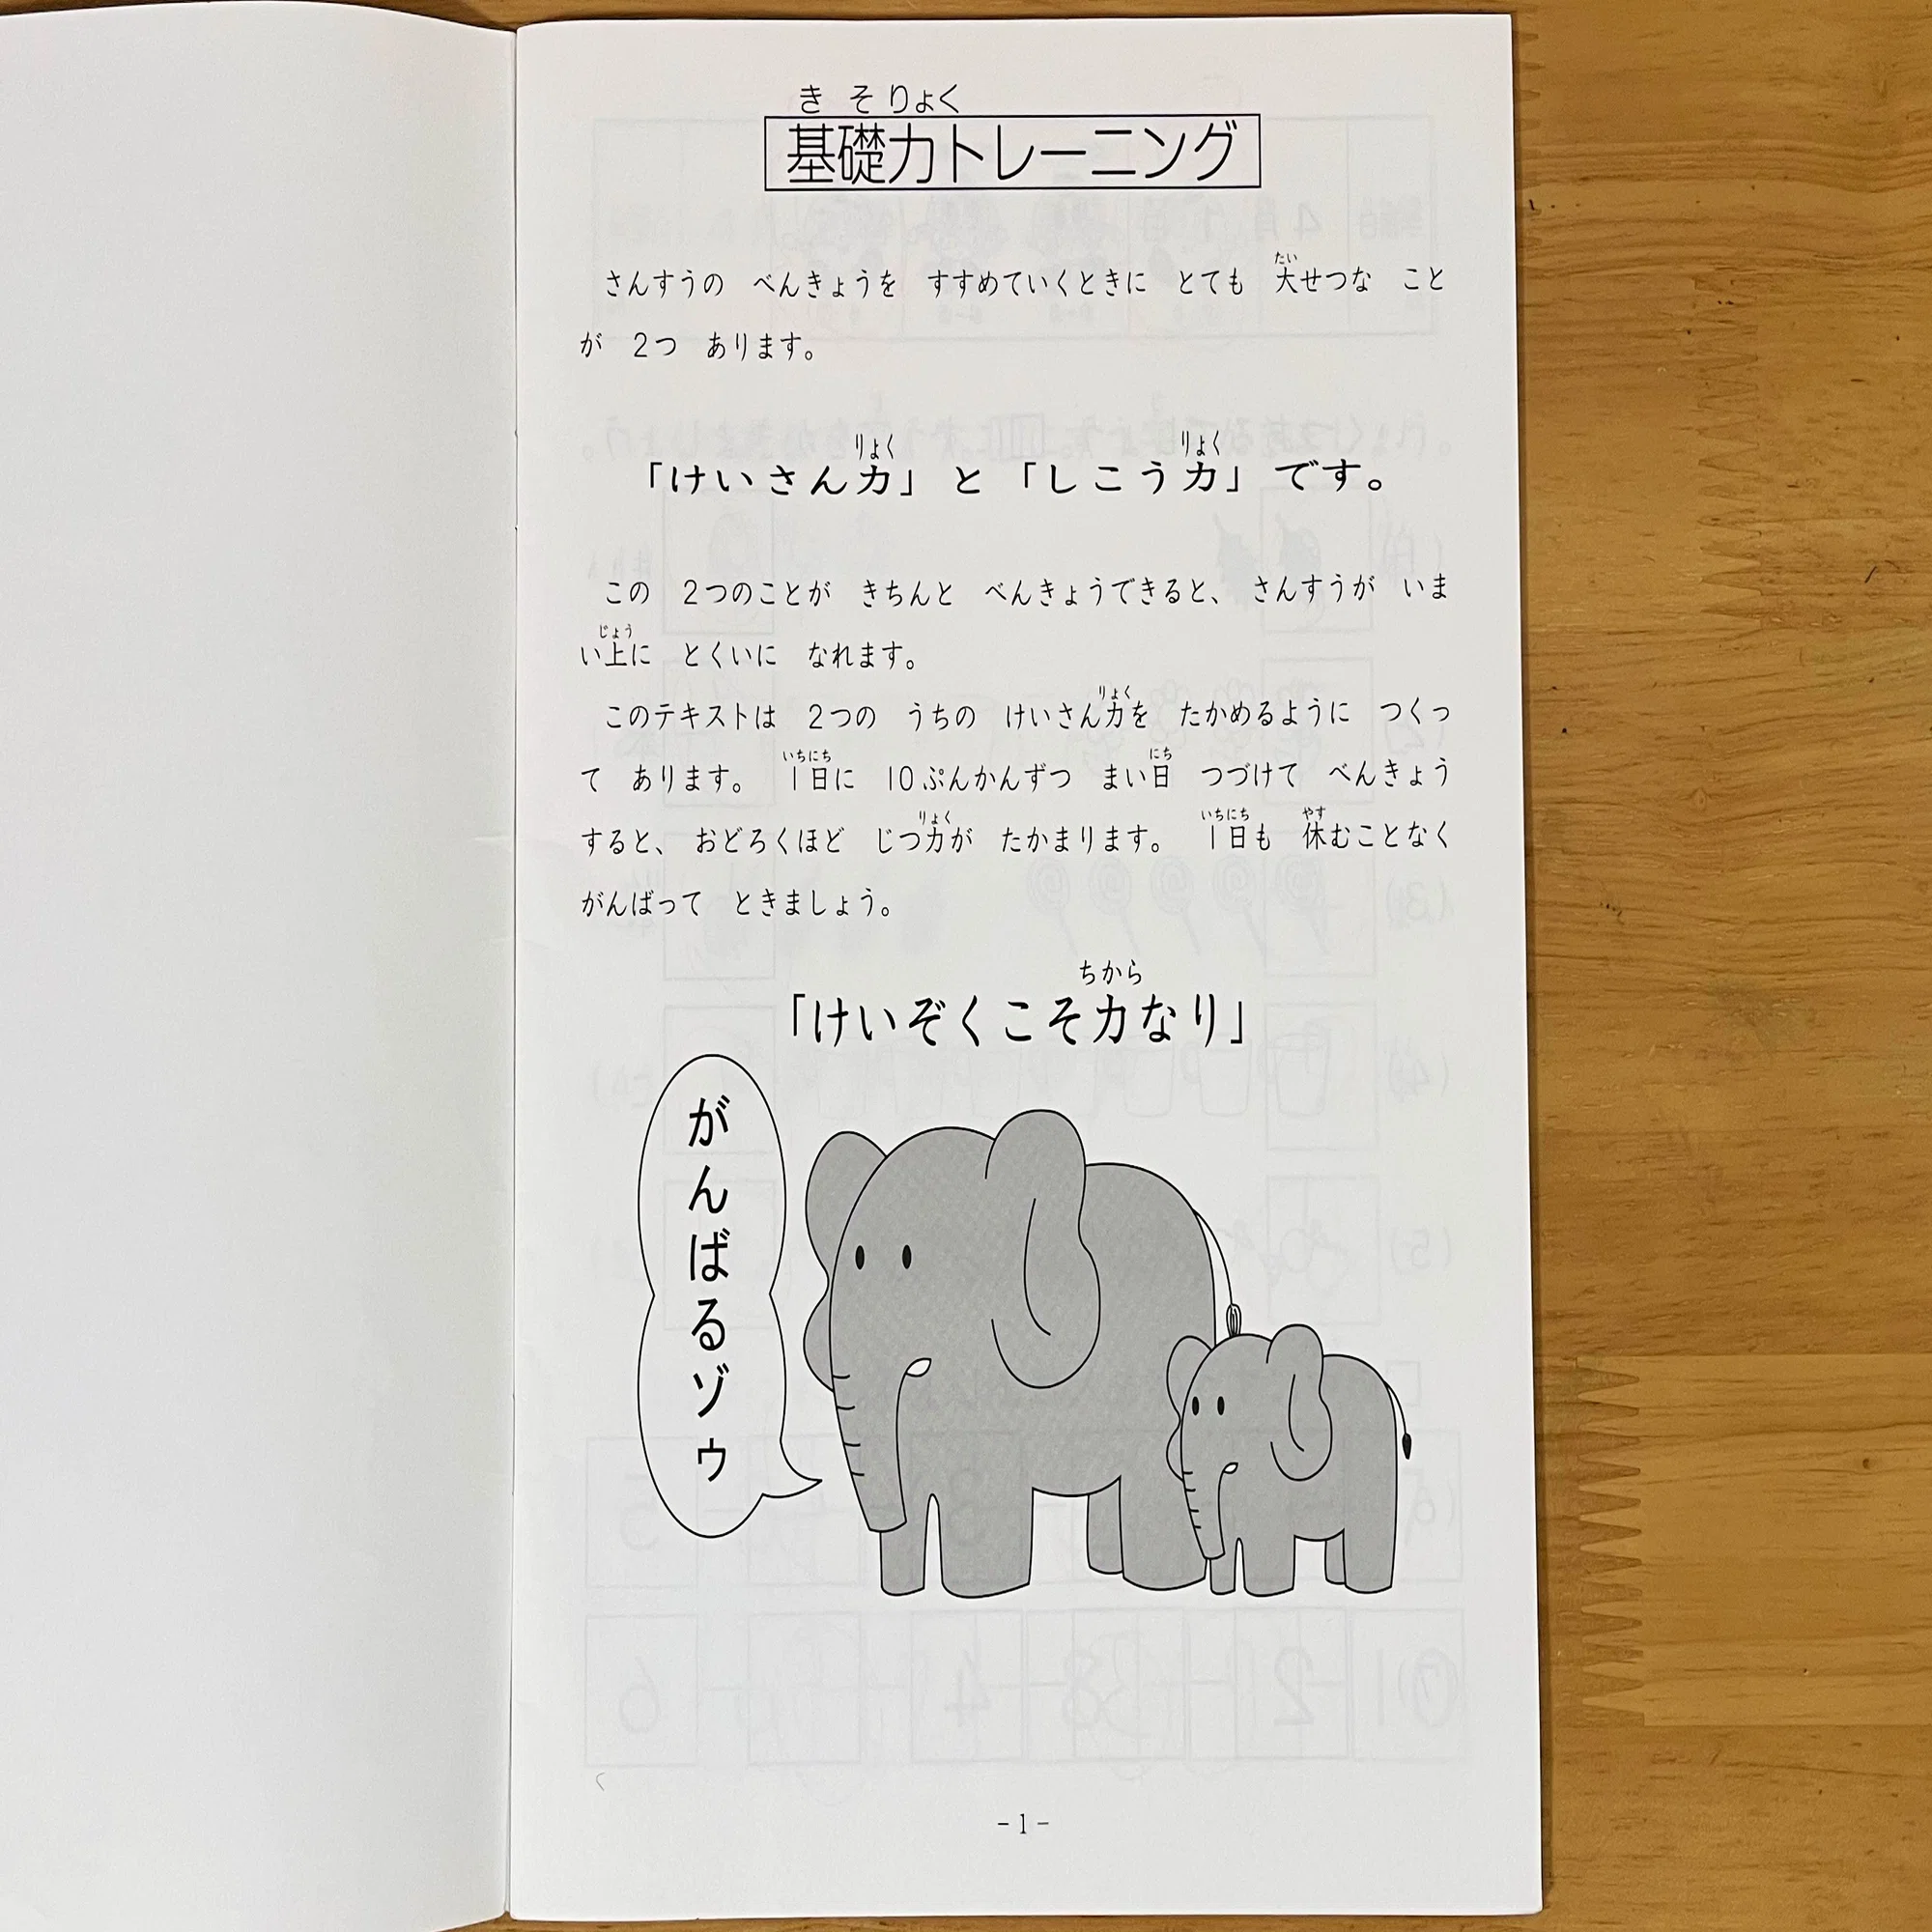 きそりょく
基礎力トレーニング
さんすうの　べんきょうを　すすめていくときに　とても　大せつな　こと
たい
が　2つ　あります。
りょく　りょく
「けいさん力」と「しこう力」です。
この　2つのことが　きちんと　べんきょうできると、さんすうが　いま
じょう
い上に　とくいに　なれます。
りょく
このテキストは　2つの　うちの　けいさん力を　たかめるように　つくっ
いちにち　にち
て　あります。　1日に　10ぷんかんずつ　まい日　つづけて　べんきょう
りょく　いちにち　やす
すると、おどろくほど　じつ力が　たかまります。　1日も　休むことなく
がんばって　ときましょう。
ちから
「けいぞくこそ力なり」
がんばるゾゥ
-1-